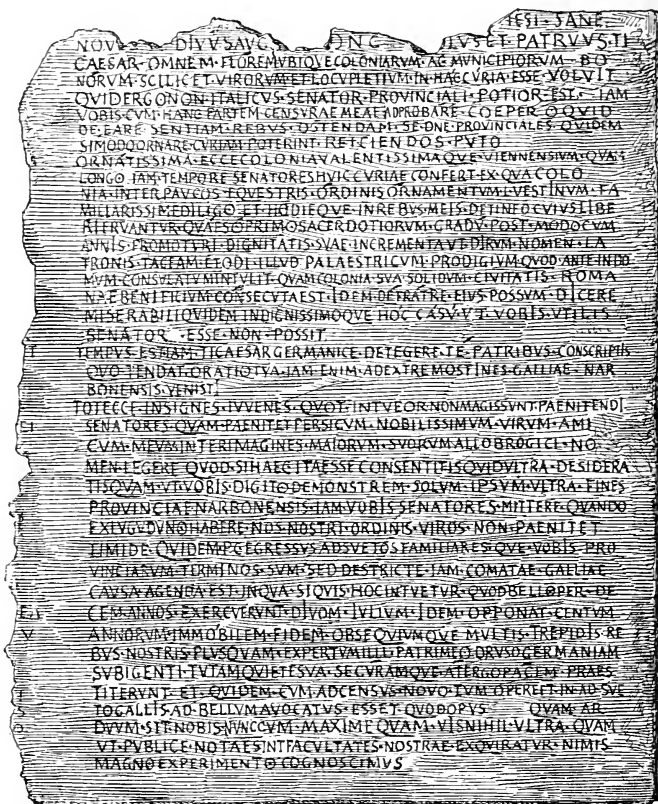 IESI · SANE
NOV DIVVS AVG NC LVS ET PATRVVS · TI
CAESAR · OMNEM · FLOREM VBIQVE COLONIARVM · AC MVNICIPIORVM · BO
NORVM SCILICET VIRORVM ET LOCVPLETIVM IN HAC CVRIA ESSE VOLVIT
QVID ERGO NON ITALICVS SENATOR PROVINCIALI POTIOR EST · IAM
VOBIS CVM HANC PARTEM CENSVRAE MEAE ADPROBARE COEPERO QVID
DE EA RE SENTIAM REBVS OSTENDAM SED NE PROVINCIALES QVIDEM
SI MODO ORNARE CVRIAM POTERINT REICIENDOS PVTO
ORNATISSIMA ECCE COLONIA VALENTISSIMAQVE VIENNENSIVM QVAM
LONGO IAM TEMPORE SENATORES HVIC CVRIAE CONFERT EX QVA COLO
NIA INTER PAVCOS EQVESTRIS ORDINIS ORNAMENTVM L VESTINVM FA
MILIARISSIME DILIGO ET HODIEQVE IN REBVS MEIS DETINEO CVIVS LIBE
RI FRVANTVR QVAESO PRIMO SACERDOTIORVM GRADV POST MODO CVM
ANNIS PROMOTVRI DIGNITATIS SVAE INCREMENTA VT DIRVM NOMEN LA
TRONIS TACEAM ET ODI ILLVD PALAESTRICVM PRODIGIVM QVOD ANTE IN DO
MVM CONSVLATVM INTVLIT QVAM COLONIA SVA SOLIDVM CIVITATIS ROMA
NAE BENIFICIVM CONSECVTA EST IDEM DE FRATRE EIVS POSSVM DICERE
MISERABILI QVIDEM INDIGNISSIMOQVE HOC CASV VT VOBIS VTILIS
SENATOR · ESSE NON POSSIT
TEMPVS EST IAM TI CAESAR GERMANICE DETEGERE TE PATRIBVS CONSCRIPTIS
QVO TENDAT ORATIO TVA IAM ENIM AD EXTREMOS FINES GALLIAE NAR
BONENSIS VENISTI
TOT ECCE INSIGNES IVVENES QVOT INTVEOR NON MAGIS SVNT PAENITENDI
SENATORES QVAM PAENITET PERSICVM NOBILISSIMVM VIRVM AMI
CVM MEVM INTER IMAGINES MAIORVM SVORVM ALLOBROGICI NO
MEN LEGERE QVOD SI HAEC ITA ESSE CONSENTITIS QVID VLTRA DESIDERA
TIS QVAM VT VOBIS DIGITO DEMONSTREM SOLVM IPSVM VLTRA FINES
PROVINCIAE NARBONENSIS IAM VOBIS SENATORES MITTERE QVANDO
EX LVGVDVNO HABERE NOS NOSTRI ORDINIS VIROS NON PAENITET
TIMIDE QVIDEM P C EGRESSVS ADSVETOS FAMILIARESQVE VOBIS PRO
VINCIARVM TERMINOS SVM SED DESTRICTE IAM COMATAE GALLIAE
CAVSA AGENDA EST IN QVA SI QVIS HOC INTVETVR QVOD BELLO PER DE
CEM ANNOS EXERCVERVNT DIVOM IVLIVM IDEM OPPONAT CENTVM
ANNORVM IMMOBILEM FIDEM OBSEQVIVMQVE MVLTIS TREPIDIS RE
BVS NOSTRIS PLVS QVAM EXPERTVM ILLI PATRI MEO DRVSO GERMANIAM
SVBIGENTI TVTAM QVIETE SVA SECVRAMQVE A TERGO PACEM PRAES
TITERVNT ET QVIDEM CVM AD CENSVS NOVO TVM OPERE ET IN AD SVE
TO GALLIS AD BELLVM AVOCATVS ESSET QVOD OPVS QVAM AR
DVVM SIT NOBIS NVNC CVM MAXIME QVAM VIS NIHIL VLTRA QVAM
VT PVBLICE NOTAE SINT FACVLTATES NOSTRAE EXQVIRATVR NIMIS
MAGNO EXPERIMENTO COGNOSCIMVS